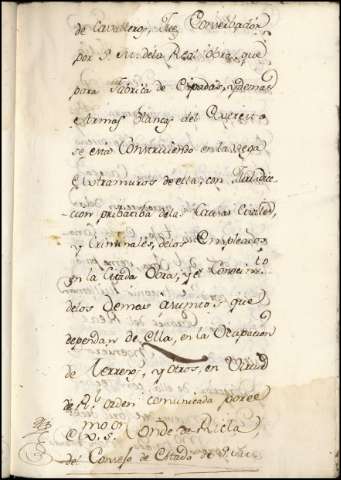 de Cavalleros, Juez Conserbador
por S. M. de la Real obra, que
para Fabrica de Espadas, y demas
Armas blancas del Exercito
se está Construiendo en la Vega
Extramuros de ella, con Jurisdic-
cion pribatiba de las Causas Civiles,
y Criminales, de los Empleados
en la Citada Obra, y Conocim.to
de los demas asuntos que
dependan de Ella, en la Ocupacion
de terreno, y otros, en Virtud
de R.l orden comunicada por el
Ex.mo S.or Conde de Ricla,
del Consejo de Estado de S.